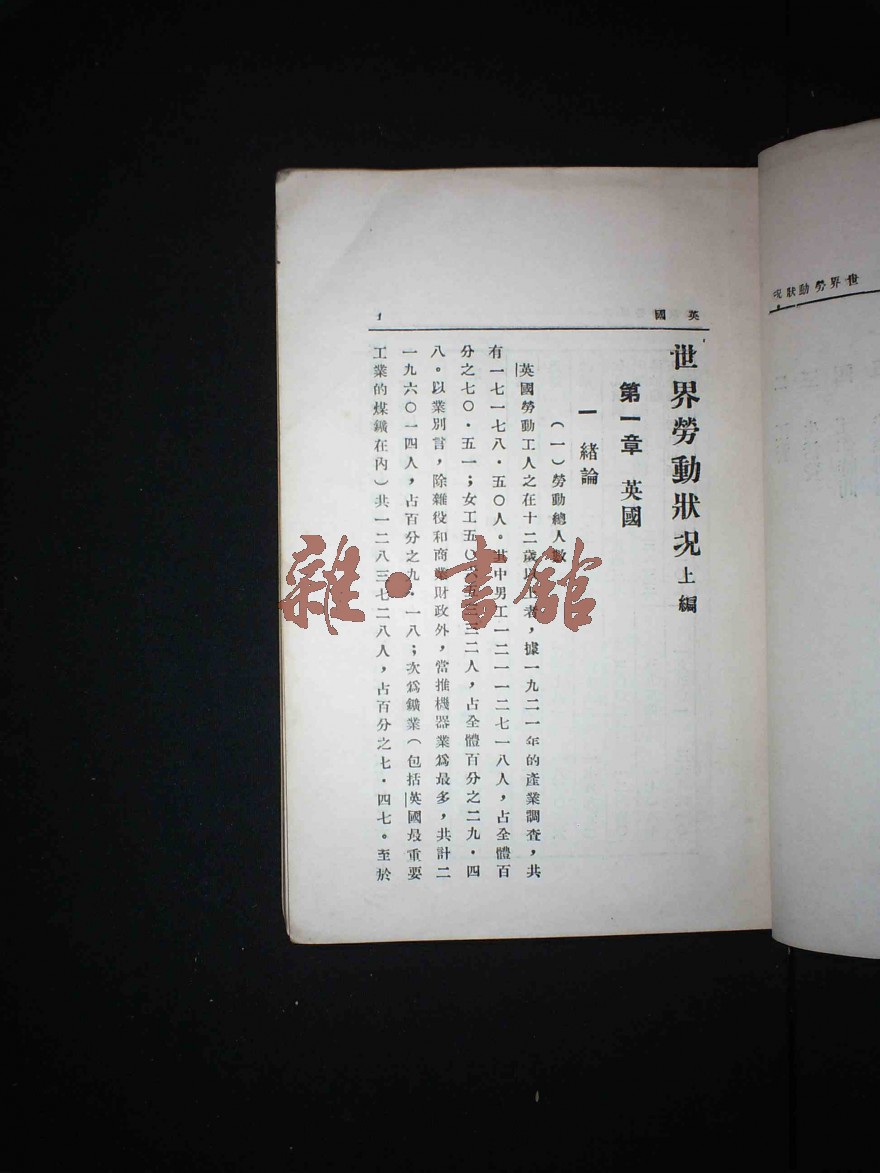 世界勞動狀況
英國
1
世界勞動狀況 上編
第一章 英國
一 緒論
(一)勞動總人數
英國勞動工人之在十二歲以上者，據一九二一年的產業調查，共
有一七一七八·五〇人。其中男工一二一一二七一八人，占全體百
分之七〇·五一；女工五〇六五三三二人，占全體百分之二九·四
八。以業別言，除雜役和商業財政外，當推機器業爲最多，共計二
一九六〇一四人，占百分之九·一八；次爲鑛業(包括英國最重要
工業的煤鑛在內)共一二八三七二八人，占百分之七·四七。至於
雜·書館